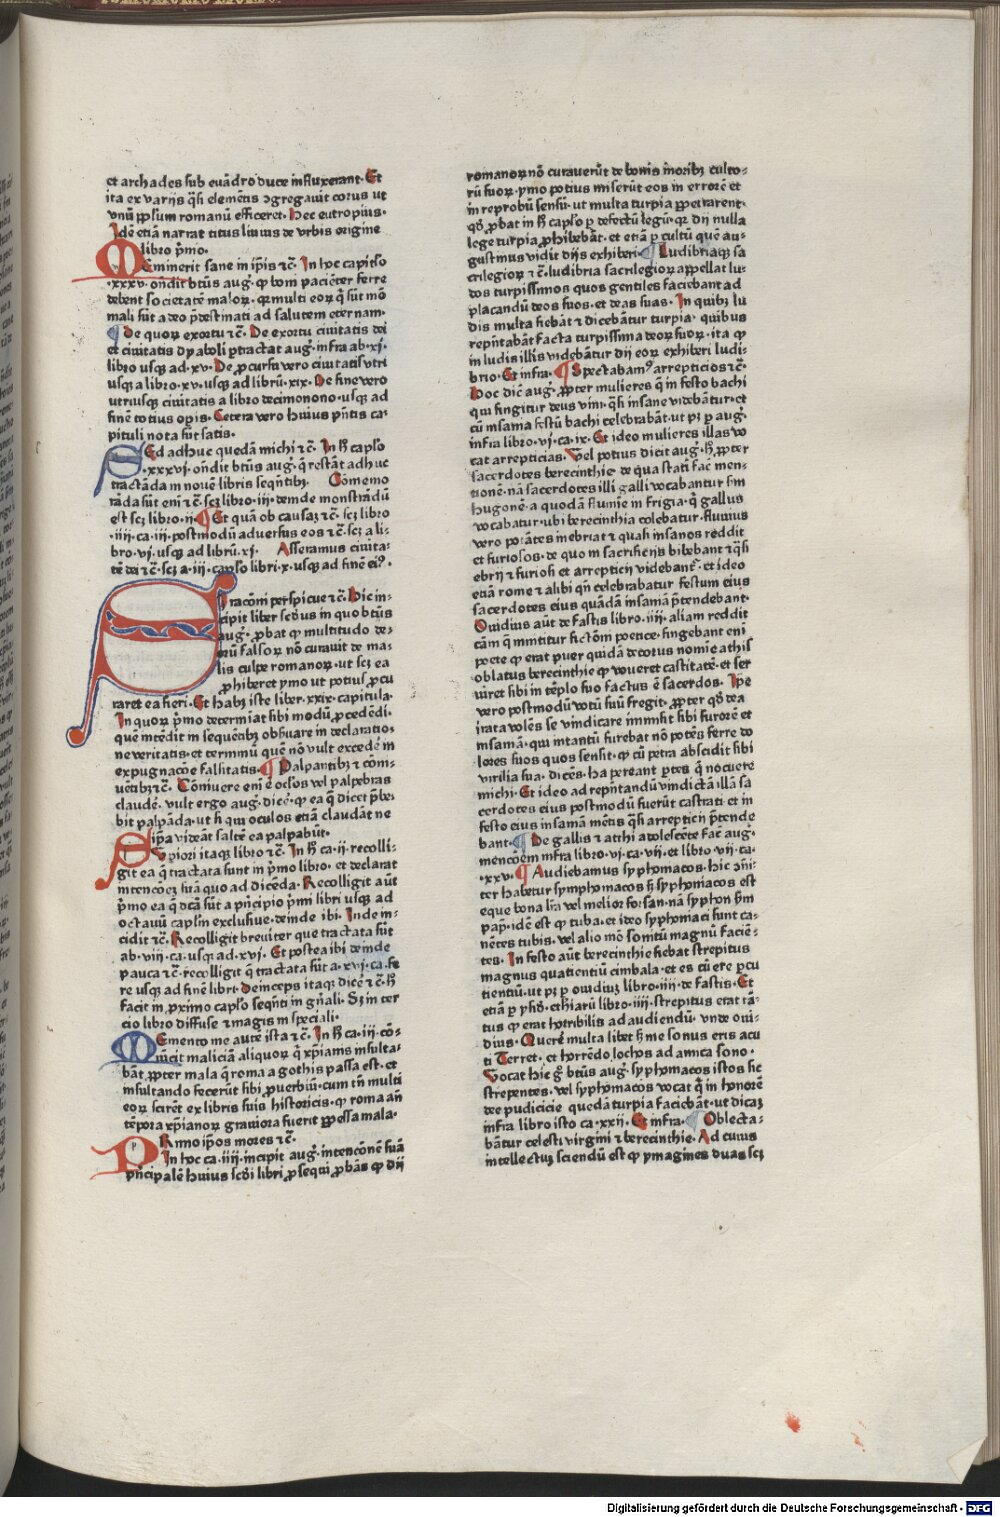 et archades sub euādro duce influxerant. Et
ita ex varijs q̄si elemētis ɔgregauit corus ut
vnū ppſum romanū efficeret. Hec eutropius.
Idē etiā narrat titus liuius de vrbis origine
libro pmo.
Meminerit sane in ipis ⁊c̄. In hoc capiťo
.xxxv. ondit btūs aug. ꝙ bom paciēter ferre
debent societatē maloꝝ. ꝙ multi eoꝝ q̄ sūt mō
mali sūt a deo pdestinati ad salutem eternam.
¶ De quoꝝ exortu ⁊c̄. De exortu ciuitatis dei
et ciuitatis dyaboli ptractat aug. infra ab .xj.
libro usqꝫ ad .xv. De pcursu vero ciuitatis utri
usqꝫ a libro .xv. usqꝫ ad librū .xix. De fine vero
utriusqꝫ ciuitatis a libro decimonono. usqꝫ ad
finē totius opis. Cetera vero huius pntis ca-
pituli nota sūt satis.
Sed adhuc quedā michi ⁊c̄. In h̄ capťo
.xxxvj. ondit btūs aug. q̄ restāt adhuc
tractāda in nouē libris seqntibꝫ. Cōmemo
rāda sūt eni ⁊c̄. scꝫ libro .iij. deinde monstrādū
est scꝫ libro .ij. ¶ Et quā ob causaꝫ ⁊c̄. scꝫ libro
.iiij. ca. iij. postmodū aduersus eos ⁊c̄. scꝫ a li-
bro .vj. usqꝫ ad librū .xj. Asseramus ciuita-
tē dei ⁊c̄. scꝫ a .iij. capťo libri .x. usqꝫ ad finē eiꝰ.
Sracōni perspicue ⁊c̄. Hic in-
cipit liber scdus in quo btūs
aug. pbat ꝙ multitudo de-
orū falsoꝝ nō curauit de ma-
lis culpe romanoꝝ. ut scꝫ ea
phiberet ymo ut potius pcu
raret ea fieri. Et habꝫ iste liber .xxix. capitula.
In quoꝝ pmo determiat sibi modū pcedēdi.
quē intēdit in sequētibꝫ obseruare in declaratio-
ne veritatis. et terminū quē nō vult excedē in
expugnacōne falsitatis. ¶ Palpantibꝫ ⁊ cōni-
uētibꝫ ⁊c̄. Cōniuere eni ē ocťos vel palpebras
claudē. vult ergo aug. dicē. ꝙ ea q̄ dicet pbe-
bit palpāda. ut h̄i qui oculos etiā claudāt ne
ipa videāt saltē ea palpabūt.
Supiori itaqꝫ libro ⁊c̄. In h̄ ca. ij. recolli-
git ea q̄ tractata sunt in pmo libro. et declarat
intencōeꝫ suā quo ad dicēda. Recolligit aūt
pmo ea q̄ dcā sūt a pncipio pmi libri usqꝫ ad
octauū capťm exclusiue. deinde ibi. Inde in-
cidit ⁊c̄. Recolligit breuiter que tractata sūt
ab .viij. ca. usqꝫ ad .xvj. Et postea ibi deinde
pauca ⁊c̄. recolligit q̄ tractata sūt a .xvj. ca. fe
re usqꝫ ad finē libri. Deinceps itaqꝫ dicē ⁊c̄. h̄
facit in pximo capťo seqnti in gnali. Sꝫ in ter
cio libro diffuse ⁊ magis in speciali.
Memento me aute ista ⁊c̄. In h̄ ca. iij. cō-
uincit maliciā aliquoꝝ q̄ xpianis insulta-
bāt. ppter mala q̄ roma a gothis passa est. et
insultando fecerūt sibi puerbiū. cum tn̄ multi
eoꝝ scirēt ex libris suis historicis. ꝙ roma an̄
tēpora xpianoꝝ grauiora fuerit ppessa mala.
PRimo ipos mores ⁊c̄.
In hoc ca. iiij. incipit aug. intencōnē suā
pncipalē huius scdi libri psequi pbās ꝙ dij
romanoꝝ nō curauerūt de bonis moribꝫ culto-
rū suoꝝ. ymo potius miserūt eos in errorē et
in reprobū sensū. ut multa turpia ppetrarent.
qd pbat in h̄ capťo p defectū legū. qꝛ dij nulla
lege turpia phibebāt. et etiā p cultū quē au-
gustinus vidit dijs exhiberi. ¶ Ludibriaqꝫ sa
crilegioꝝ ⁊c̄. ludibria sacrilegioꝝ appellat lu-
dos turpissimos quos gentiles faciebant ad
placandū deos suos. et deas suas. In quibꝫ lu
dis multa fiebāt ⁊ dicebātur turpia. quibus
repntabāt facta turpissima deoꝝ suoꝝ. ita ꝙ
in ludis illis videbātur dij eoꝝ exhiberi ludi-
brio. Et infra. ¶ Spectabamꝰ arrepticios ⁊c̄.
Hoc dic̄ aug. ppter mulieres q̄ in festo bachi
qui fingitur deus vini. q̄si insane videbātur. et
cū insania festū bachi celebrabāt. ut pꝫ p aug.
infra libro .vj. ca. ix. Et ideo mulieres illas vo
cat arrepticias. Uel potius dicit aug. h̄. ppter
sacerdotes berecinthie. de qua statī fac̄ men-
tionē. nā sacerdotes illi galli vocabantur sm
hugonē. a quodā flumie in frigia. q̄ gallus
vocabatur. ubi berecinthia colebatur. fluuius
vero potātes inebriat ⁊ quasi insanos reddit
et furiosos. de quo in sacrificijs bibebant ⁊ q̄si
ebrij ⁊ furiosi et arrepticij videbant̄. et ideo
etiā rome ⁊ alibi qn celebrabatur festum eius
sacerdotes eius quādā insaniā ptendebant.
Ouidius aūt de fastis libro .iiij. aliam reddit
cām q̄ innititur fictōni poetice. fingebant eni
poete ꝙ erat puer quidā decorus nomie athis
oblatus berecinthie ꝙ voueret castitatē. et ser
uiret sibi in tēplo suo factus ē sacerdos. Ipe
vero postmodū votū suū fregit. ppter qd dea
irata volēs se vindicare immisit sibi furorē et
insaniā. qui intantū furebat nō potēs ferre do
lores suos quos sensit. ꝙ cū petra abscidit sibi
virilia sua. dicēs. ha pereant ptes q̄ nocuere
michi. Et ideo ad repntandū vindictā illā sa
cerdotes eius postmodū fuerūt castrati. et in
festo eius insaniā mētis q̄si arrepticij ptende
bant. ¶ De gallis ⁊ atthi adolescēte fac̄ aug.
mencōem infra libro .vj. ca. vij. et libro .vij. ca.
.xxv. ¶ Audiebamus syphomacos. hic ɔn̄i-
ter habetur symphomacos. h̄ syphoniacos est
eque bona lra vel melior forsan. nā syphon sm
pap. idē est ꝙ tuba. et ideo syphoniaci sunt ca-
nētes tubis. vel alio mō sonitū magnū faciē-
tes. In festo aūt berecinthie fiebat strepitus
magnus quatientiū cimbala. et es cū ere pcu
tientiū. ut pꝫ p ouidiuꝫ libro .iiij. de fastis. Et
etiā p yſid. ethiaꝝ libro .iiij. strepitus erat tā-
tus ꝙ erat horribilis ad audiendū. vnde oui-
dius. Querē multa libet h̄ me sonus eris acu
ti Terret. et horrēdo lochos ad amica sono.
Vocat hic g° btūs aug. syphomacos istos sic
strepentes. vel syphomacos vocat q̄ in honorē
dee pudicicie quedā turpia faciebāt. ut dicaꝫ
infra libro isto ca. xxij. Et infra. ¶ Oblecta-
bātur celesti virgini ⁊ berecinthie. Ad cuius
intellectuꝫ sciendū est ꝙ ymagines duas scꝫ
Digitalisierung gefördert durch die Deutsche Forschungsgemeinschaft - DFG